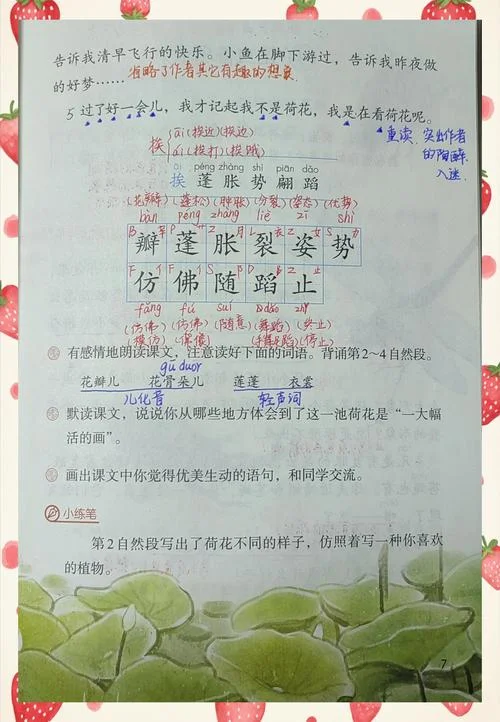 告诉我清早飞行的快乐。小鱼在脚下游过，告诉我昨夜做
的好梦…… 省略了作者其它有趣的想象
5 过了好一会儿，我才记起我不是荷花，我是在看荷花呢。
重读，突出作者
的陶醉、
入迷。
挨 āi (挨近) (挨边)
ái (挨打) (挨饿)
āi péng zhàng shì piān dǎo
挨 蓬 胀 势 翩 蹈
(花瓣) (蓬松) (肿胀) (分裂) (姿态) (优势)
bàn péng zhàng liè zī shì
瓣 蓬 胀 裂 姿 势
仿 佛 随 蹈 止
fǎng fú suí dǎo zhǐ
(仿佛) (仿佛) (随意) (舞蹈) (终止)
(模仿) (停止)
有感情地朗读课文，注意读好下面的词语。背诵第2~4自然段。
gū duor
花瓣儿 花骨朵儿 莲蓬 衣裳
儿化音 轻声词
默读课文，说说你从哪些地方体会到了这一池荷花是“一大幅
活的画”。
画出课文中你觉得优美生动的语句，和同学交流。
小练笔
第2自然段写出了荷花不同的样子，仿照着写一种你喜欢
的植物。
7